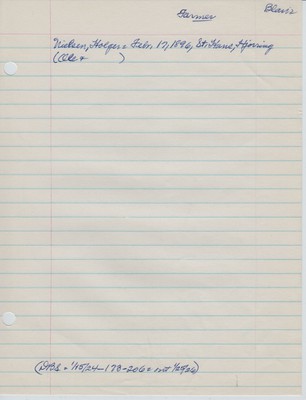 Farmer
Blair
Nielsen, Holger = Feb. 17, 1896, St. Hans, Hjorring
(Ole + )
(DBS = 1/15/24-178-206 = nat 1/25/26)